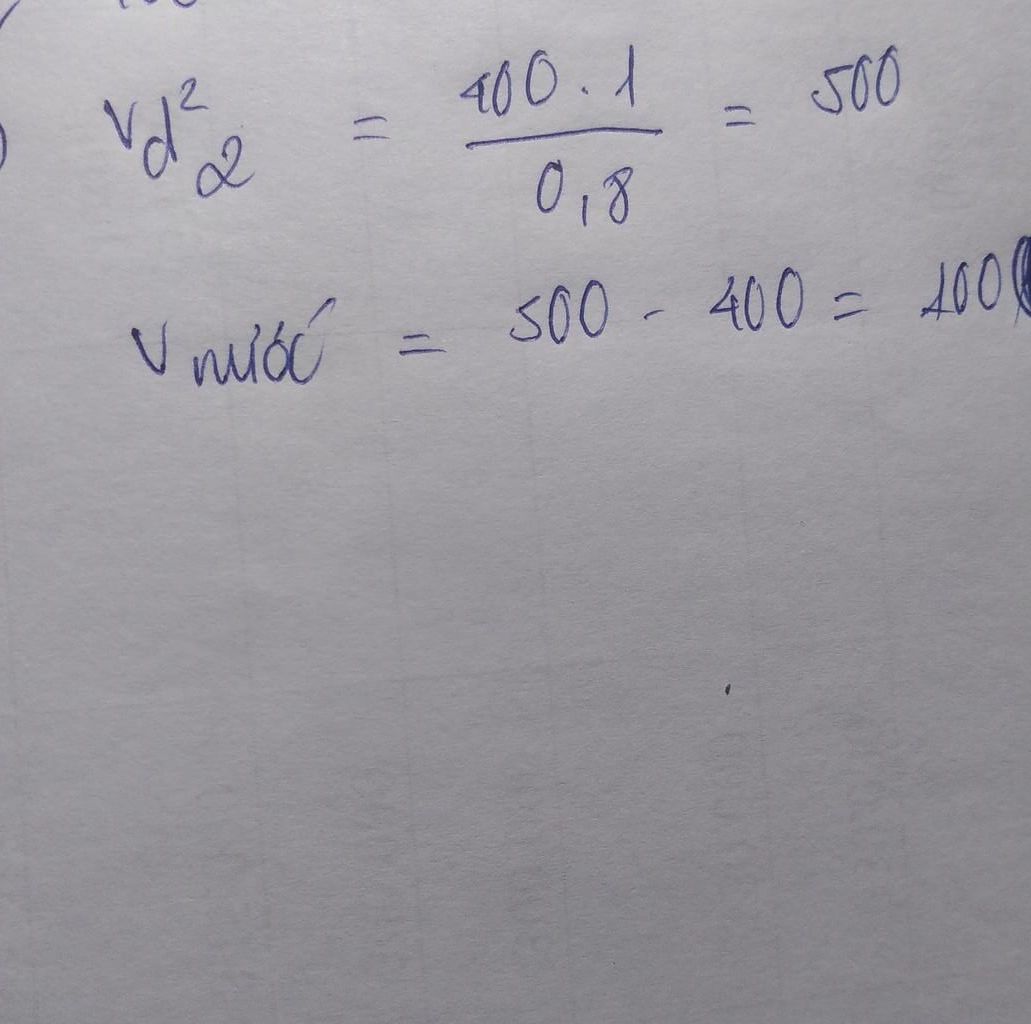 V_{d^2 2} = \frac{400 \cdot 1}{0,8} = 500
V nước = 500 - 400 = 100